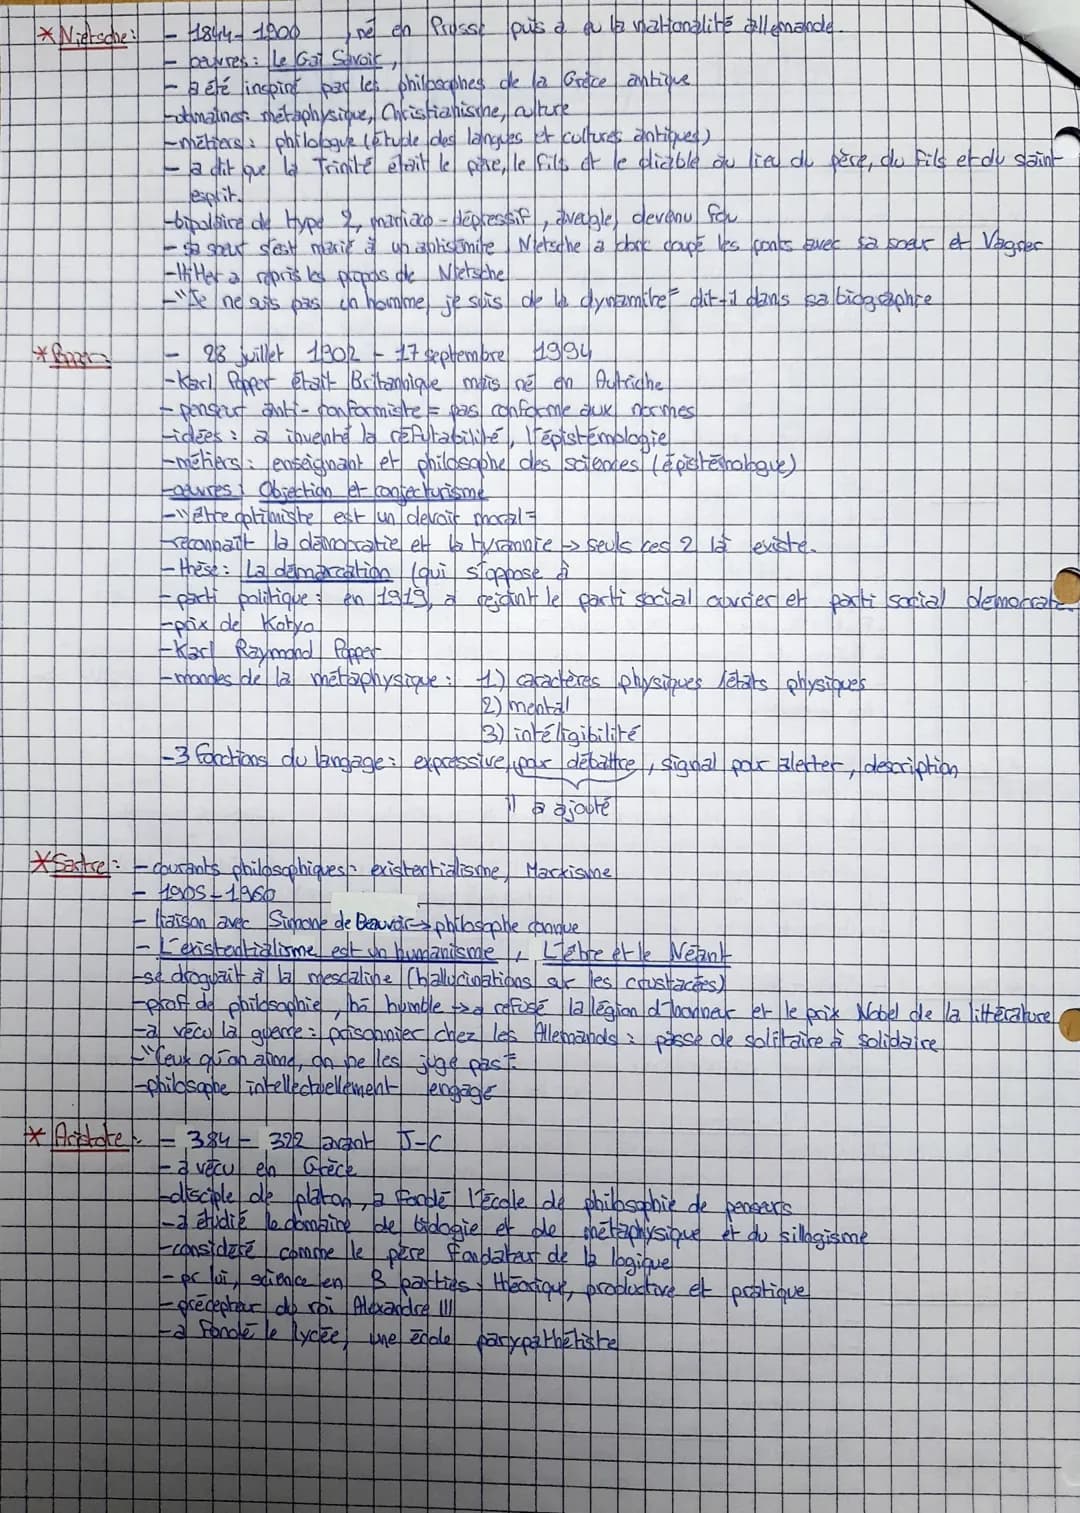 * Nietsche : - 1844 - 1900 , né en Prusse puis a eu la nationalité allemande.
- oeuvres : Le Gai Savoir,
- a été inspiré par les philosophes de la Grèce antique
- domaines : métaphysique, Christianisme, culture
- métiers : philologue (étude des langues et cultures antiques)
- a dit que la Trinité était le père, le fils et le diable au lieu du père, du fils et du saint-
esprit.
- bipolaire de type 2, maniaco-dépressif, aveugle, devenu fou
- sa soeur s'est marié à un antisémite, Nietsche a donc coupé les ponts avec sa soeur et Vagner
- Hitler a repris les propos de Nietsche
- "Je ne suis pas un homme, je suis de la dynamite" dit-il dans sa biographie
* Popper : - 28 juillet 1902 - 17 septembre 1994
- Karl Popper était Britannique mais né en Autriche
- penseur anti-conformiste = pas conforme aux normes
- idées : a inventé la réfutabilité, l'épistémologie
- métiers : enseignant et philosophe des sciences (épistémologue)
- oeuvres : Objection et conjecturisme
- "être optimiste est un devoir moral"
- reconnaît la démocratie et la tyrannie → seuls ces 2 là existe.
- thèse : La démarcation (qui s'oppose à
- parti politique : en 1919, a rejoint le parti social ouvrier et parti social démocrate
- prix de Kotyo
- Karl Raymond Popper
- mondes de la métaphysique : 1) caractères physiques / états physiques
2) mental
3) intéligibilité
- 3 fonctions du langage : expressive, pour débattre, signal pour alerter, description
il a ajouté
* Sartre : - courants philosophiques : existentialisme, Marxisme
- 1905 - 1980
- liaison avec Simone de Beauvoir → philosophe connue
- L'existentialisme est un humanisme, L'être et le Néant
- se droguait à la mescaline (hallucinations sur les crustacés)
- prof de philosophie, humble → a refusé la légion d'honneur et le prix Nobel de la littérature
- a vécu la guerre : prisonnier chez les Allemands : passe de solitaire à solidaire
- "Ceux qu'on aime, on ne les juge pas".
- philosophe intellectuellement engagé
* Aristote : - 384 - 322 avant J-C
- a vécu en Grèce
- disciple de platon, a fondé l'école de philosophie de penseurs
- a étudié le domaine de biologie et de métaphysique et du sillogisme
- considéré comme le père fondateur de la logique
- pr lui, science en 3 parties : théorique, productive et pratique
- précepteur du roi Alexandre III
- a fondé le lycée, une école parypathétiste